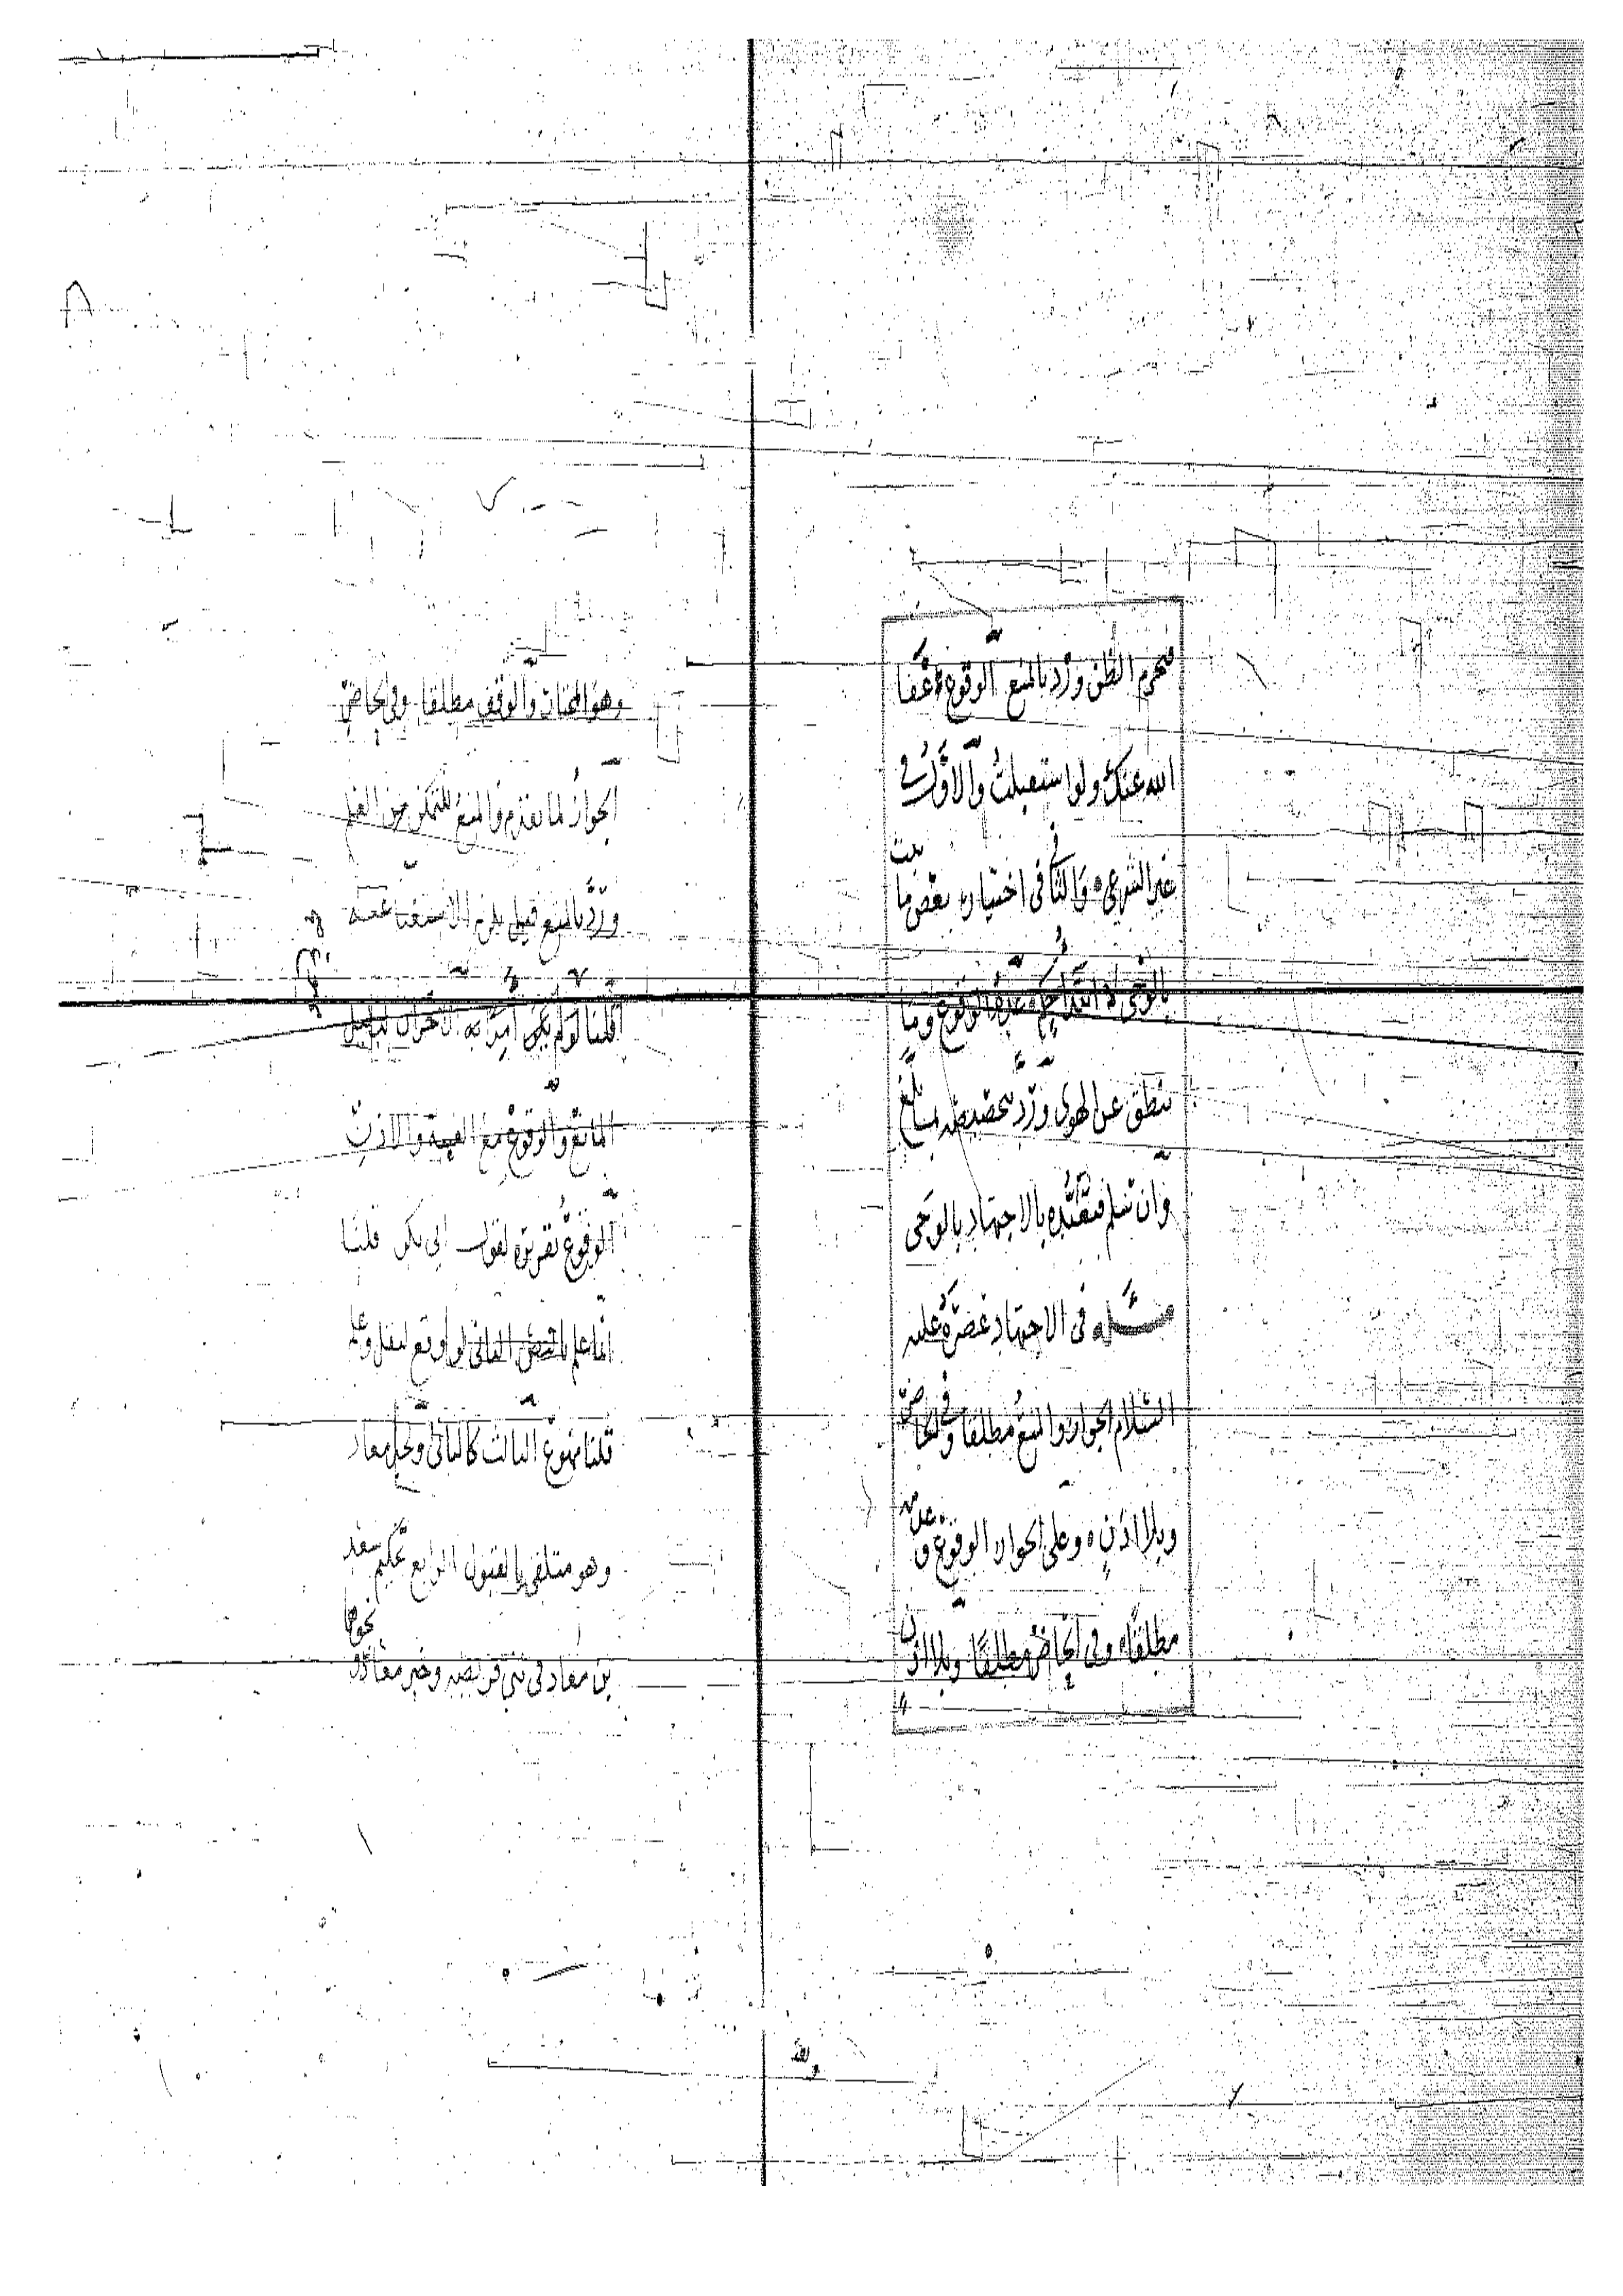 فيحرم الظن ورد بالمنع الوقوع عفا
الله عنك ولو استقبلت والأول في
غير الشرعي والثاني في اختياره بعض ما
بالوحي لا ابتدا حكم الوقوع وما
ينطق عن الهوى ورد بتخصيصه بما بلغ
وان سلم فتعبده بالاجتهاد بالوحي
مسئله في الاجتهاد عصره عليه
السلام الجواز والمنع مطلقا وفي الحاضر
وبلا اذن وعلى الجواز الوقوع
مطلقا وفي الحاضر مطلقا وبلا اذن
وهو المختار والوقف مطلقا وفي الحاضر
الجواز لما تقدم والمنع للتمكن من العلم
ورد بالمنع قيل يلزم الاستغنا عنه
قلنا لو لم يكن
المانع والوقوع مع الغيبة والاذن
الوقوع تقريره لقول ابي بكر قلنا
انما علم الثاني لو وقع لنقل وعلم
قلنا ممنوع الثالث كالثاني ولخبر معاذ
وهو متلقى بالقبول الرابع تحكيم سعد
بن معاذ في بني قريضه وخبر معاذ ونحوها